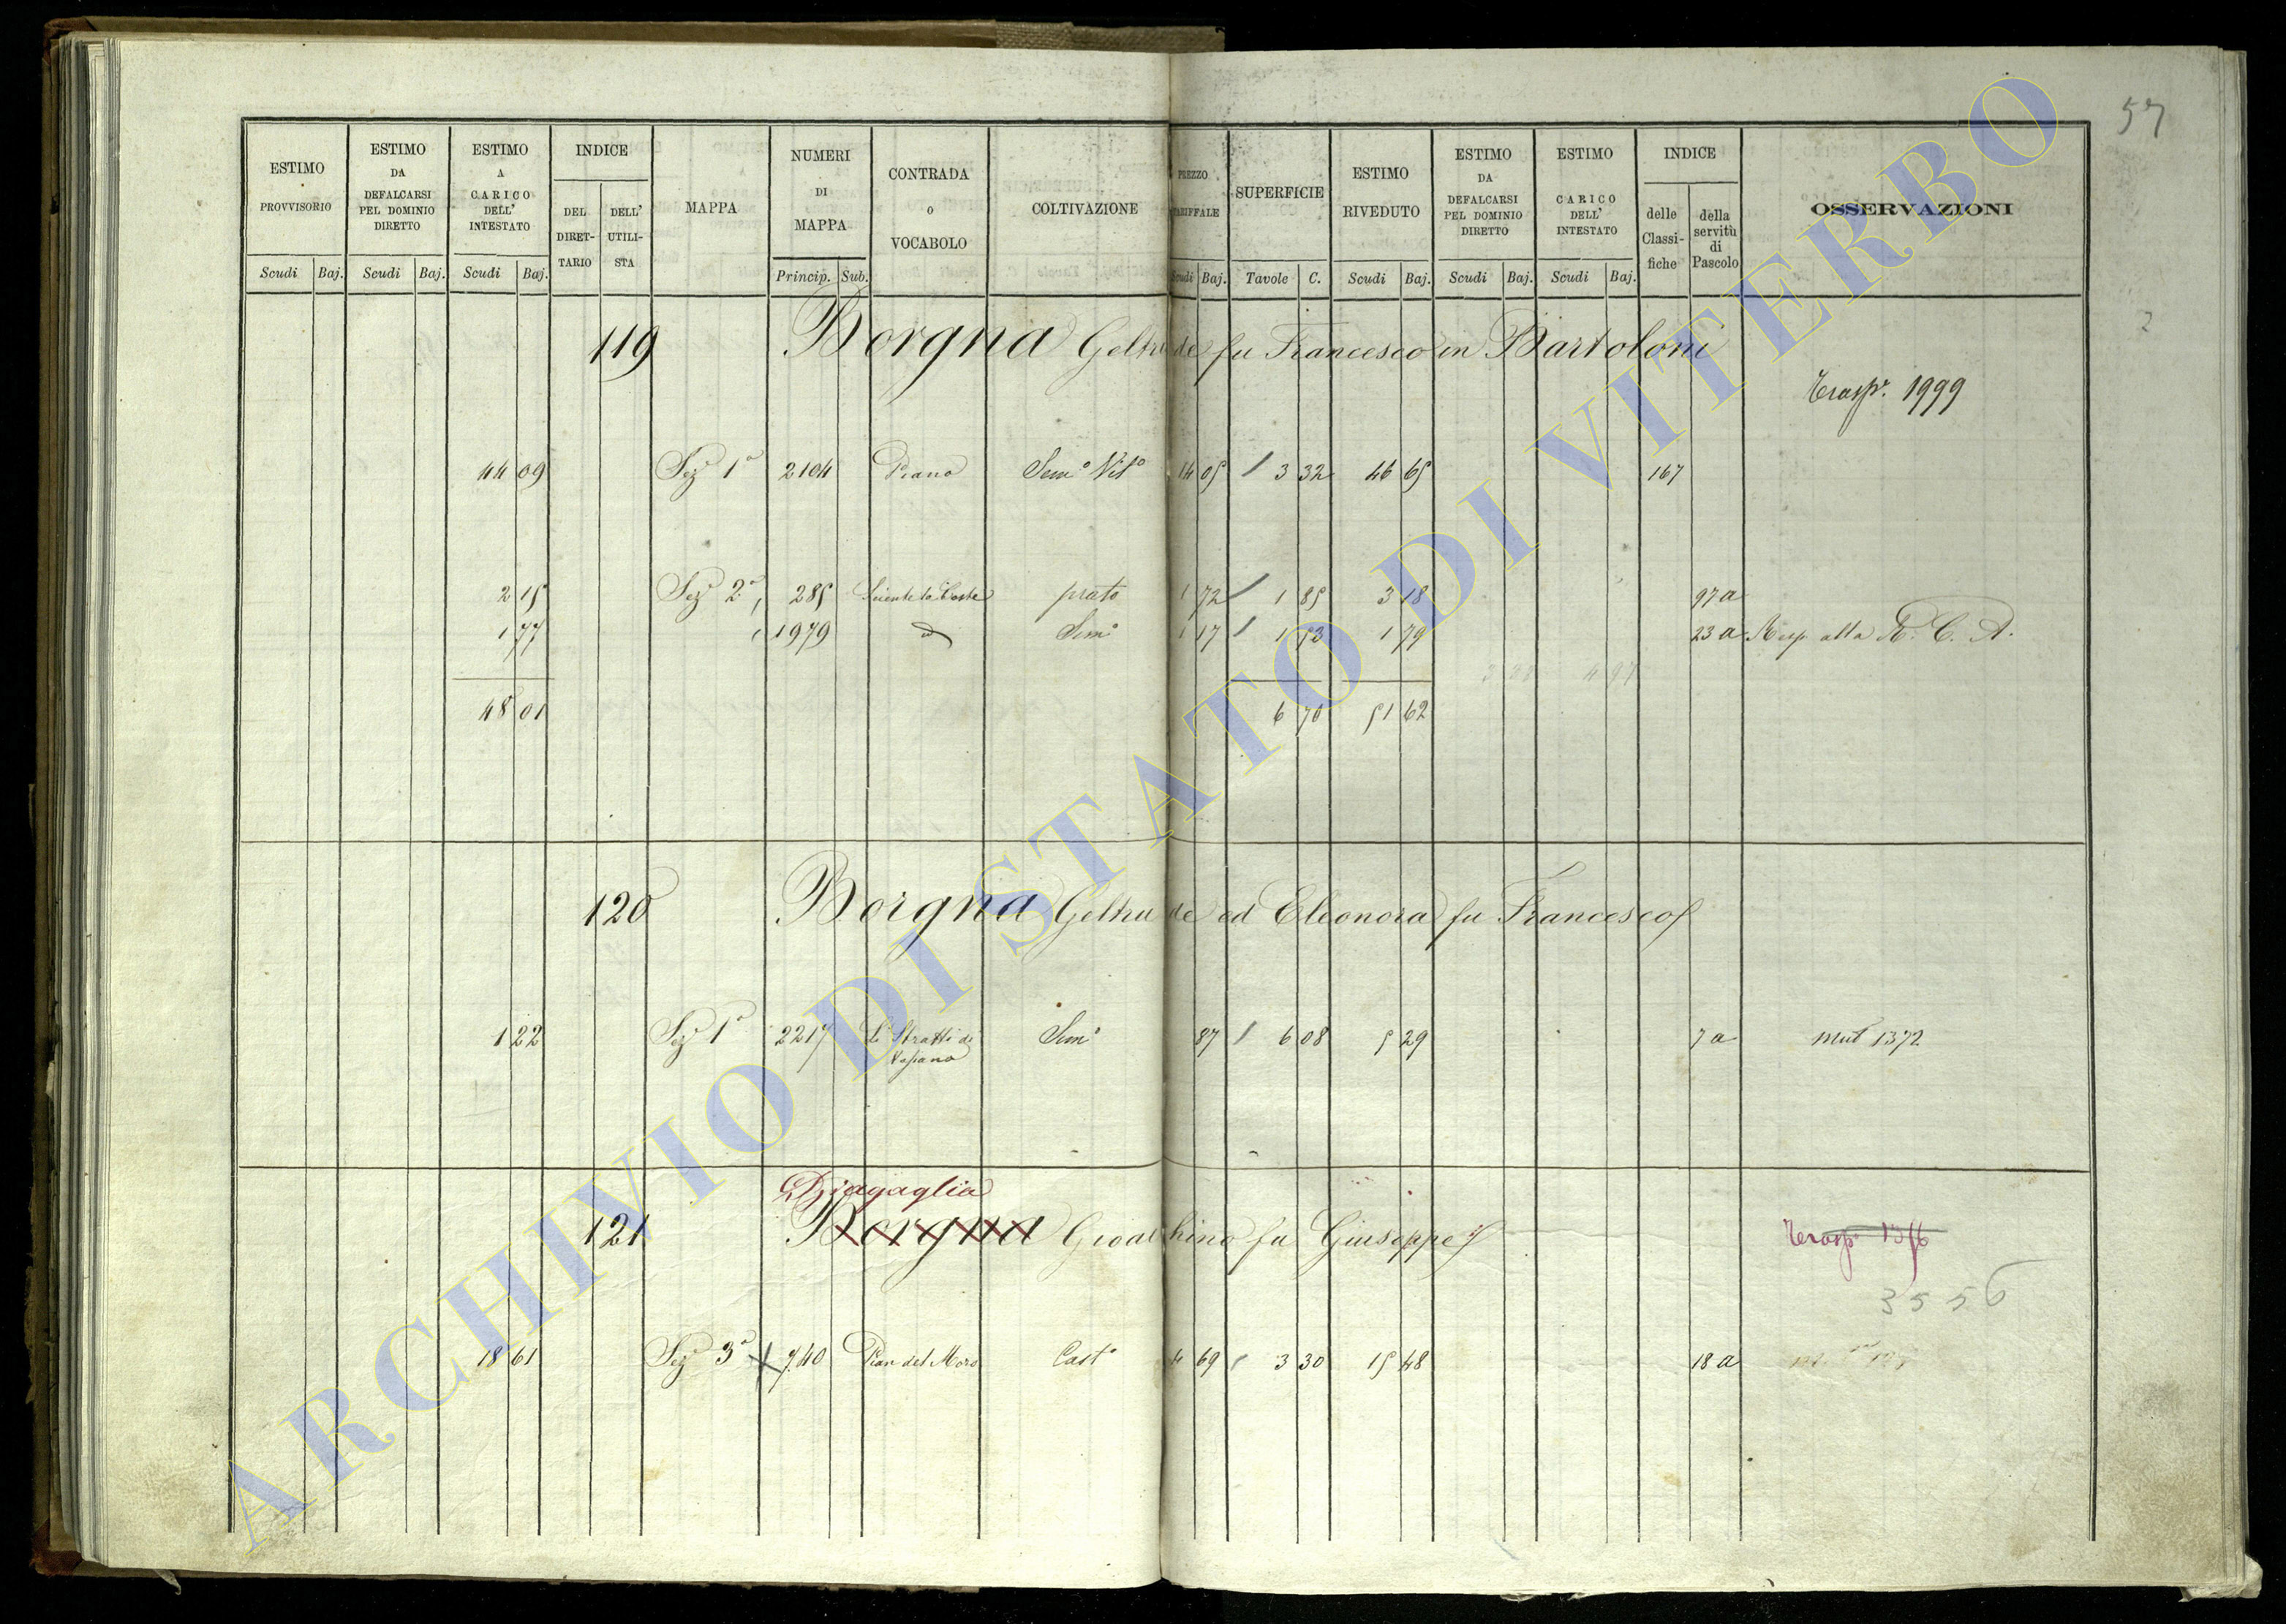 57
ESTIMO PROVVISORIO Scudi Baj.
ESTIMO DA DEFALCARSI PEL DOMINIO DIRETTO Scudi Baj.
ESTIMO A CARICO DELL' INTESTATO Scudi Baj.
INDICE DEL DIRET-TARIO DELL' UTILI-STA
MAPPA
NUMERI DI MAPPA Princip. Sub.
CONTRADA O VOCABOLO
COLTIVAZIONE
PREZZO TARIFFALE Scudi Baj.
SUPERFICIE Tavole C.
ESTIMO RIVEDUTO Scudi Baj.
ESTIMO DA DEFALCARSI PEL DOMINIO DIRETTO Scudi Baj.
ESTIMO CARICO DELL' INTESTATO Scudi Baj.
INDICE delle Classi-fiche della servitù di Pascolo
OSSERVAZIONI
2
119 Borgna Geltrude fu Francesco in Bartoloni
Trasp. 1999
44 09 Sez 1a 2104 Piano Sem° Vit° 14 05 3 32 46 65 167
2 15 Sez 2a 285 prato 1 72 1 85 3 18 97 a
1 77 1979 Sem° 1 17 1 53 1 79 23 a Resp alla R. C. A.
48 01 6 70 51 62
120 Borgna Geltrude ed Eleonora fu Francesco
1 22 Sez 1a 2217 Li Stratti di Sem° 87 6 08 5 29 7 a Mut 1372
Diagaglia
121 Borgna Gioachino fu Giuseppe
Trasp.
3556
18 61 Sez 3a 740 Pian del Moro Cast° 4 69 3 30 15 48 18 a
ARCHIVIO DI STATO DI VITERBO